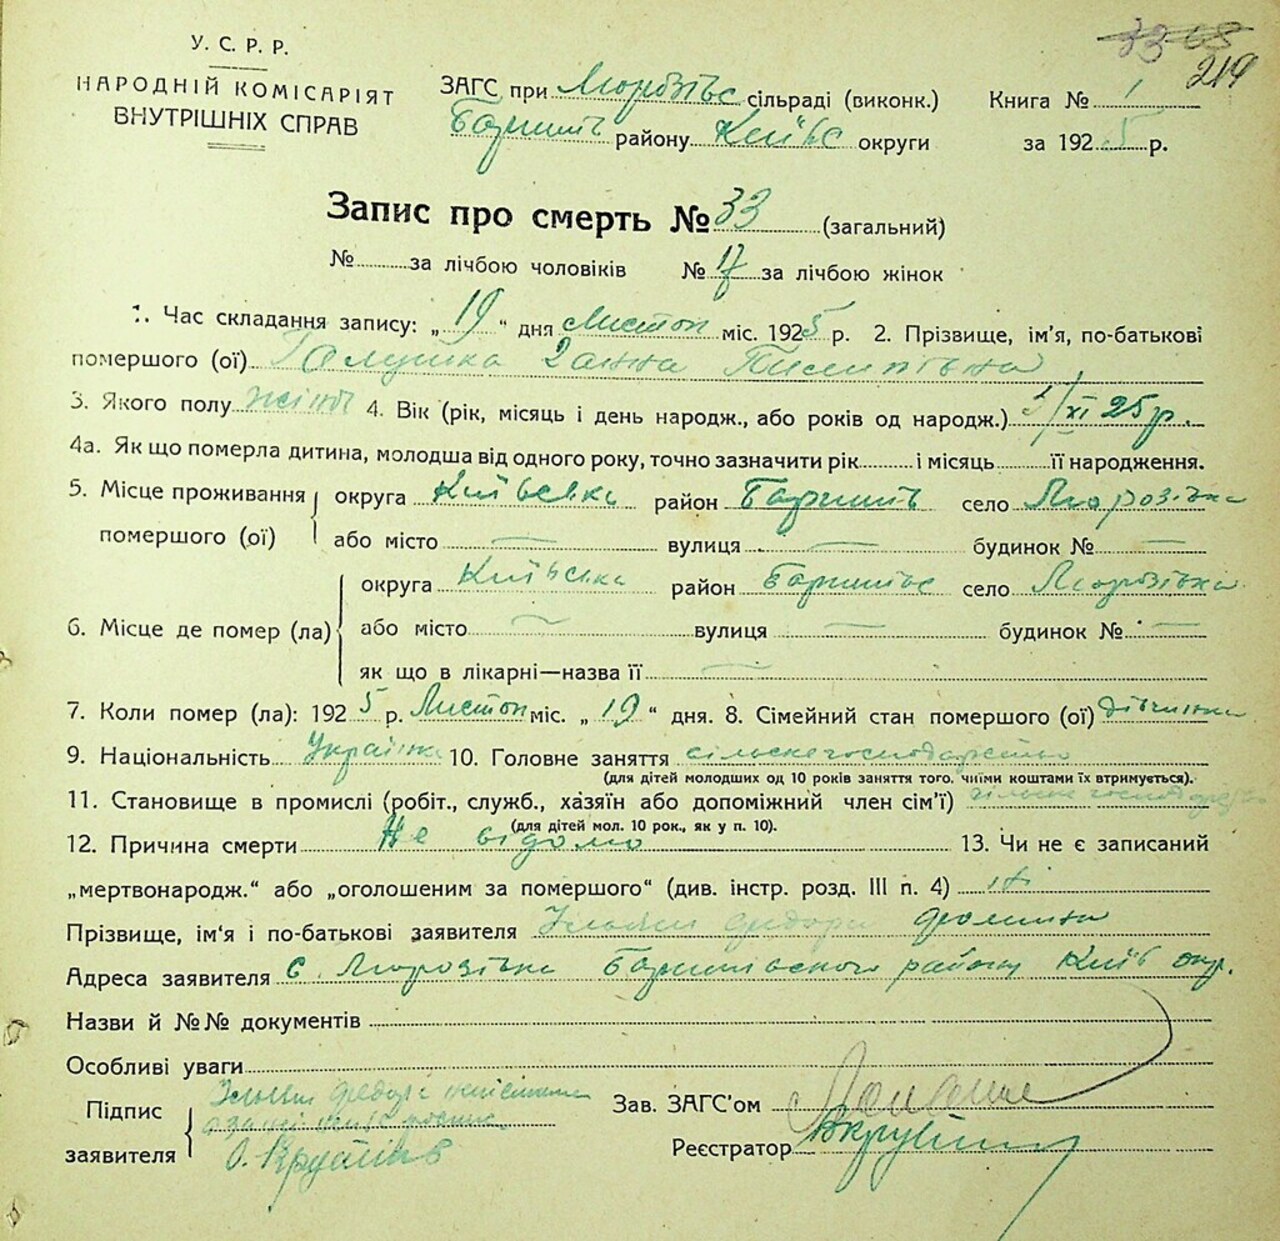 У. С. Р. Р.
НАРОДНІЙ КОМІСАРІЯТ
ВНУТРІШНІХ СПРАВ
ЗАГС при Морозівс сільраді (виконк.)
Баришів району Київс округи
Книга № 1
за 1925 р.
33 68
219
Запис про смерть № 33 (загальний)
№ за лічбою чоловіків № 17 за лічбою жінок
1. Час складання запису: „19“ дня Листоп міс. 1925 р. 2. Прізвище, ім'я, по-батькові
помершого (ої) Галушка Ганна Пилипівна
3. Якого полу жіноч 4. Вік (рік, місяць і день народж., або років од народж.) /XI 25 р.
4а. Як що померла дитина, молодша від одного року, точно зазначити рік і місяць її народження.
5. Місце проживання помершого (ої) округа Київська район Баришів село Морозівка
або місто — вулиця — будинок № —
6. Місце де помер (ла) округа Київська район Баришівс село Морозівка
або місто — вулиця — будинок № —
як що в лікарні—назва її —
7. Коли помер (ла): 1925 р. Листоп міс. „19“ дня. 8. Сімейний стан помершого (ої) дівчинка
9. Національність Українка 10. Головне заняття сільске господарство
(для дітей молодших од 10 років заняття того, чиїми коштами їх втримується).
11. Становище в промислі (робіт., служб., хазяїн або допоміжний член сім'ї) сільське господарство
(для дітей мол. 10 рок., як у п. 10).
12. Причина смерти Не відомо 13. Чи не є записаний
„мертвонародж.“ або „оголошеним за помершого“ (див. інстр. розд. III п. 4) ні
Прізвище, ім'я і по-батькові заявителя
Адреса заявителя с. Морозівка Баришівського району Київ окр.
Назви й №№ документів
Особливі уваги
Підпис
заявителя
Зав. ЗАГС'ом
Реєстратор